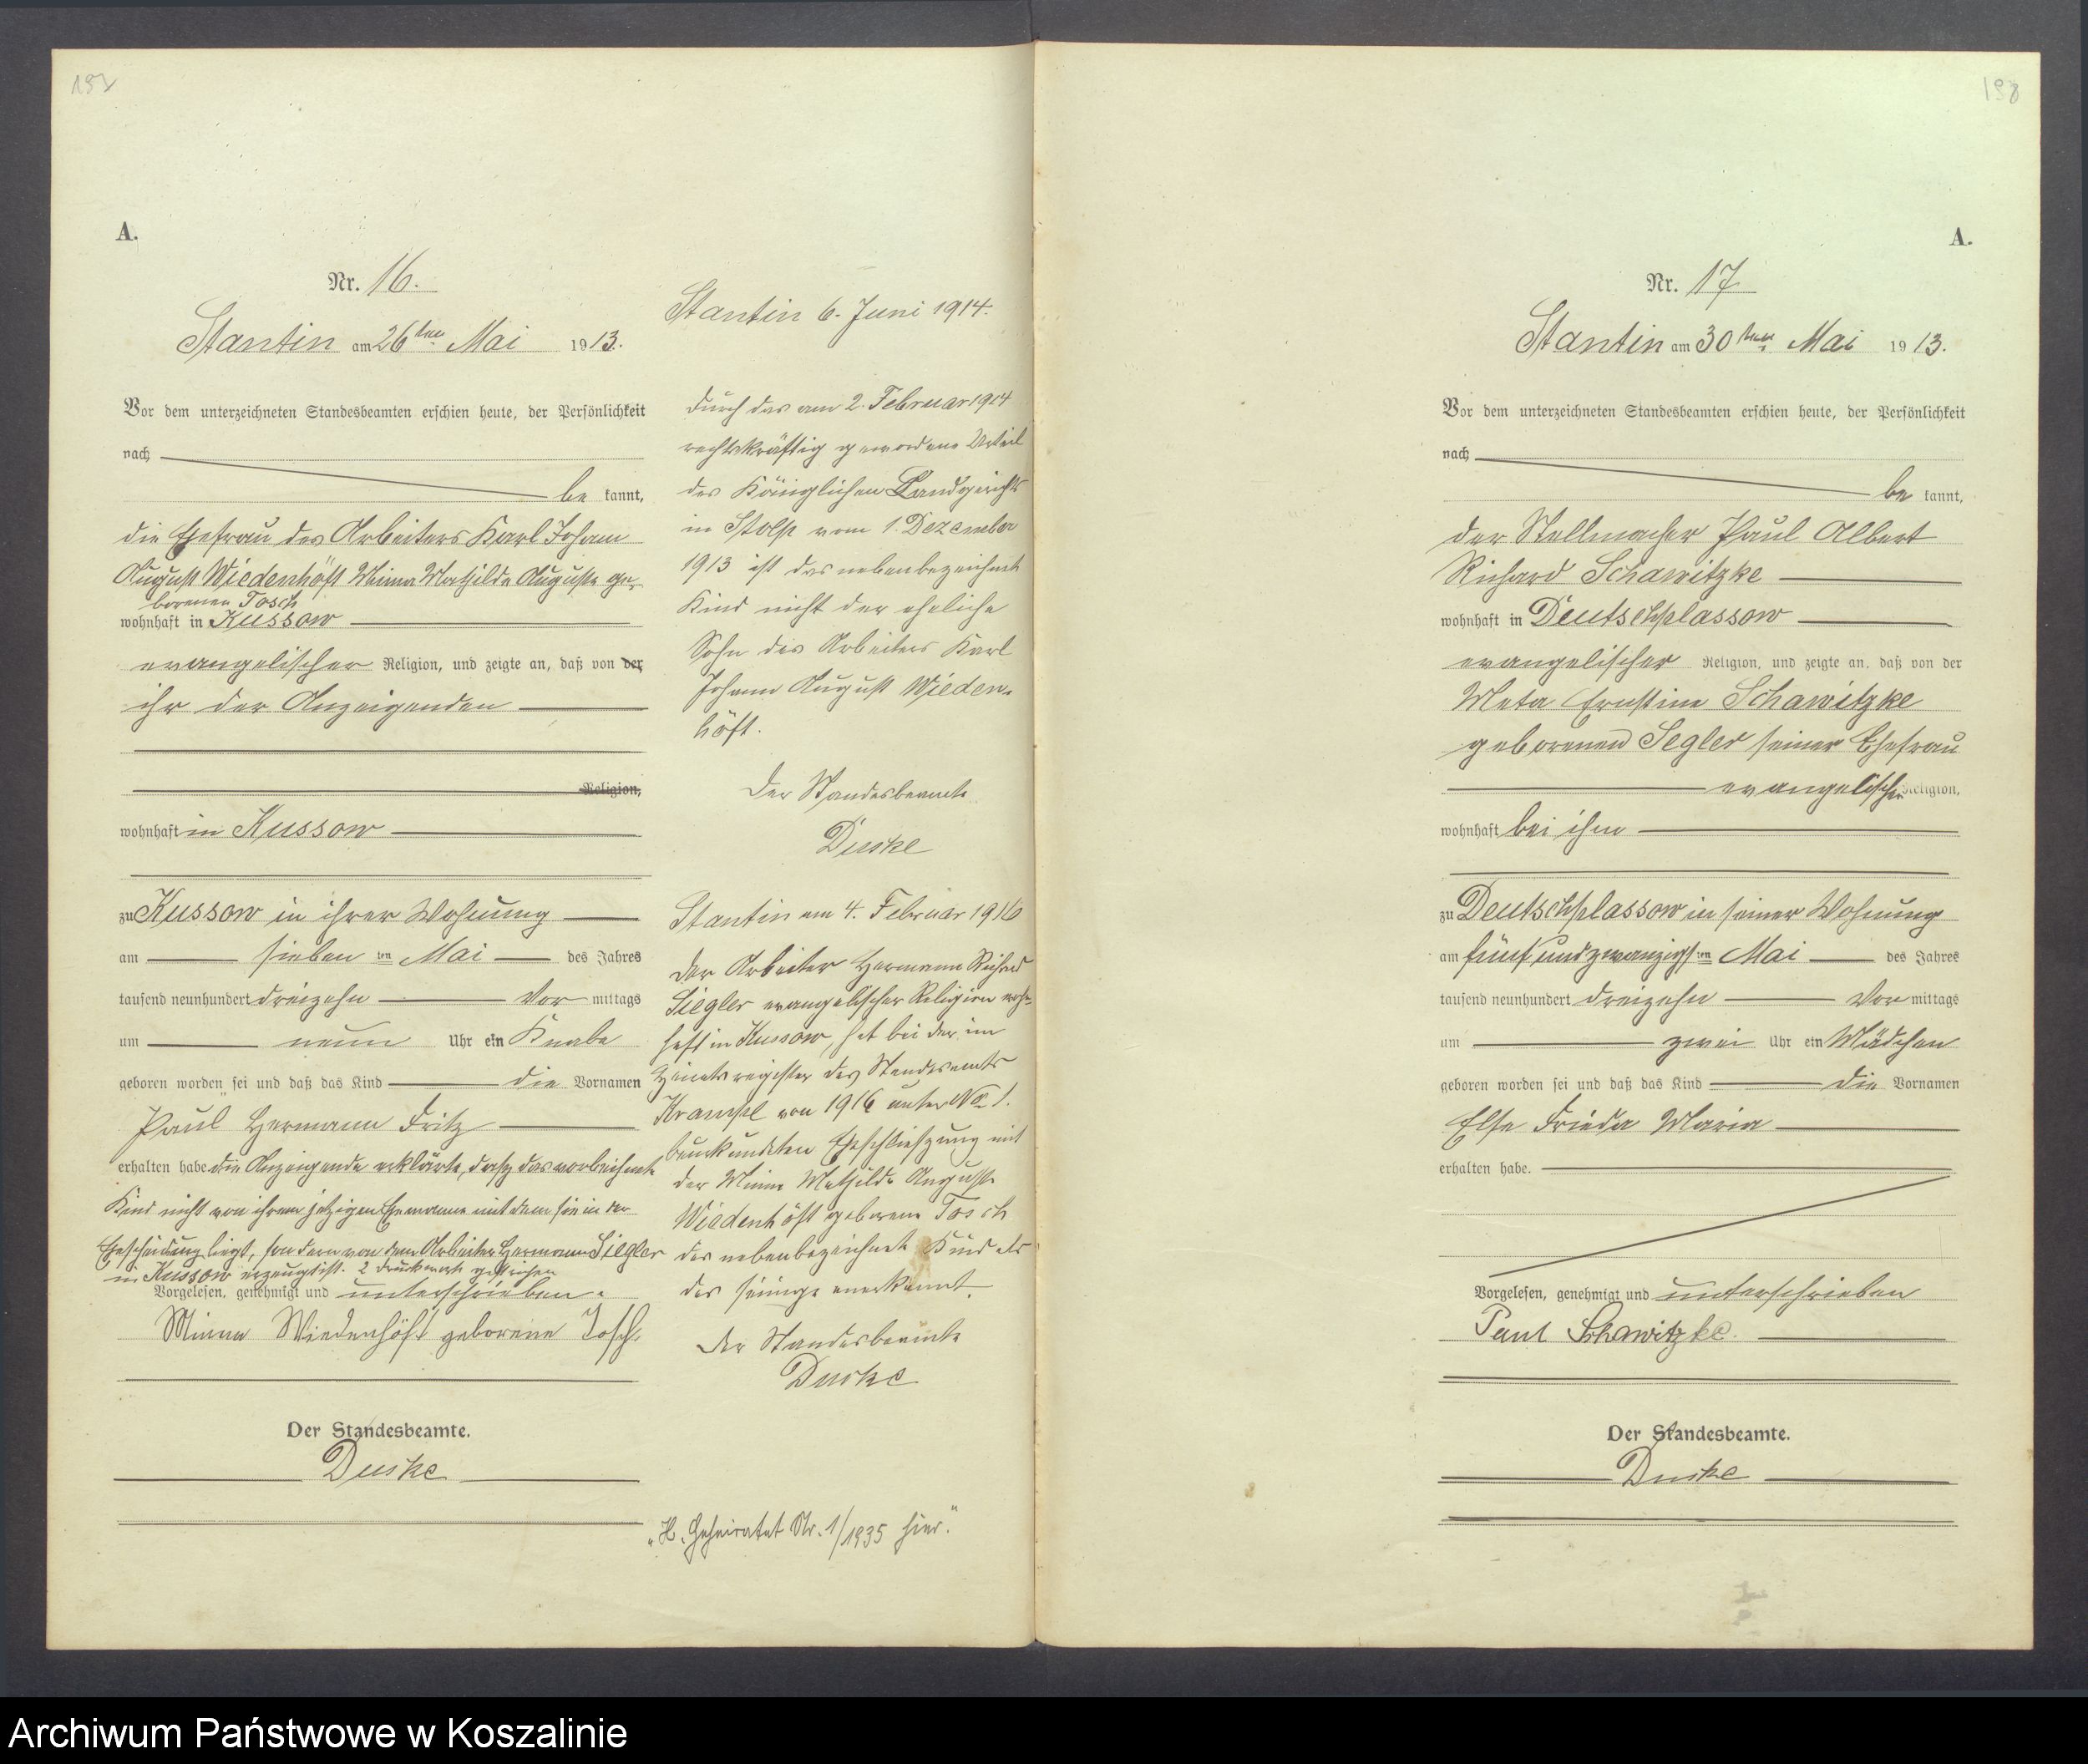 A.
Nr. 16.
Stantin am 26ten Mai 1913.
Vor dem unterzeichneten Standesbeamten erschien heute, der Persönlichkeit
nach
be kannt,
die Ehefrau des Arbeiters Karl Johann
August Wiedenhöft Minna Mathilde Auguste ge-
borenen Tosch
wohnhaft in Kussow
evangelischer Religion, und zeigte an, daß von der
ihr der Anzeigenden
Religion,
wohnhaft in Kussow
zu Kussow in ihrer Wohnung
am sieben ten Mai des Jahres
tausend neunhundert dreizehn Vor mittags
um neun Uhr ein Knabe
geboren worden sei und daß das Kind die Vornamen
Paul Hermann Fritz
erhalten habe. die Anzeigende erklärte, dasz das vorbezeichnete
Kind nicht von ihrem jetzigen Ehemanne mit dem sie in der
Ehescheidung liegt, sondern von dem Arbeiter Hermann Siegler
in Kussow erzeugt ist. 2 Druckworte gestrichen
Vorgelesen, genehmigt und unterschrieben.
Minna Wiedenhöft geborene Tosch.
Der Standesbeamte.
Duske
Stantin 6. Juni 1914.
Durch das am 2. Februar 1914
rechtskräftig gewordene Urteil
des Königlichen Landgerichts
in Stolp vom 1. Dezember
1913 ist das nebenbezeichnete
Kind nicht der eheliche
Sohn des Arbeiters Karl
Johann August Wieden-
höft.
Der Standesbeamte
Duske
Stantin am 4. Februar 1916
Der Arbeiter Hermann Richard
Siegler evangelischer Religion wohn-
haft in Kussow, hat bei der im
Heiratsregister des Standesamts
Krampe von 1916 unter No 1.
beurkundeten Eheschlieszung mit
der Minna Mathilde Auguste
Wiedenhöft geborene Tosch
das nebenbezeichnete Kind als
das seinige anerkannt.
Der Standesbeamte
Duske
"H. Geheiratet Nr. 1/1935 hier."
198
A.
Nr. 17
Stantin am 30ten Mai 1913.
Vor dem unterzeichneten Standesbeamten erschien heute, der Persönlichkeit
nach
be kannt,
der Stellmacher Paul Albert
Richard Schawitzke
wohnhaft in Deutschplassow
evangelischer Religion, und zeigte an, daß von der
Meta Ernstine Schawitzke
geborenen Segler seiner Ehefrau
evangelischer Religion,
wohnhaft bei ihm
zu Deutschplassow in seiner Wohnung
am fünf und zwanzigsten Mai des Jahres
tausend neunhundert dreizehn Vor mittags
um zwei Uhr ein Mädchen
geboren worden sei und daß das Kind die Vornamen
Else Frieda Maria
erhalten habe.
Vorgelesen, genehmigt und unterschrieben
Paul Schawitzke.
Der Standesbeamte.
Duske
Archiwum Państwowe w Koszalinie